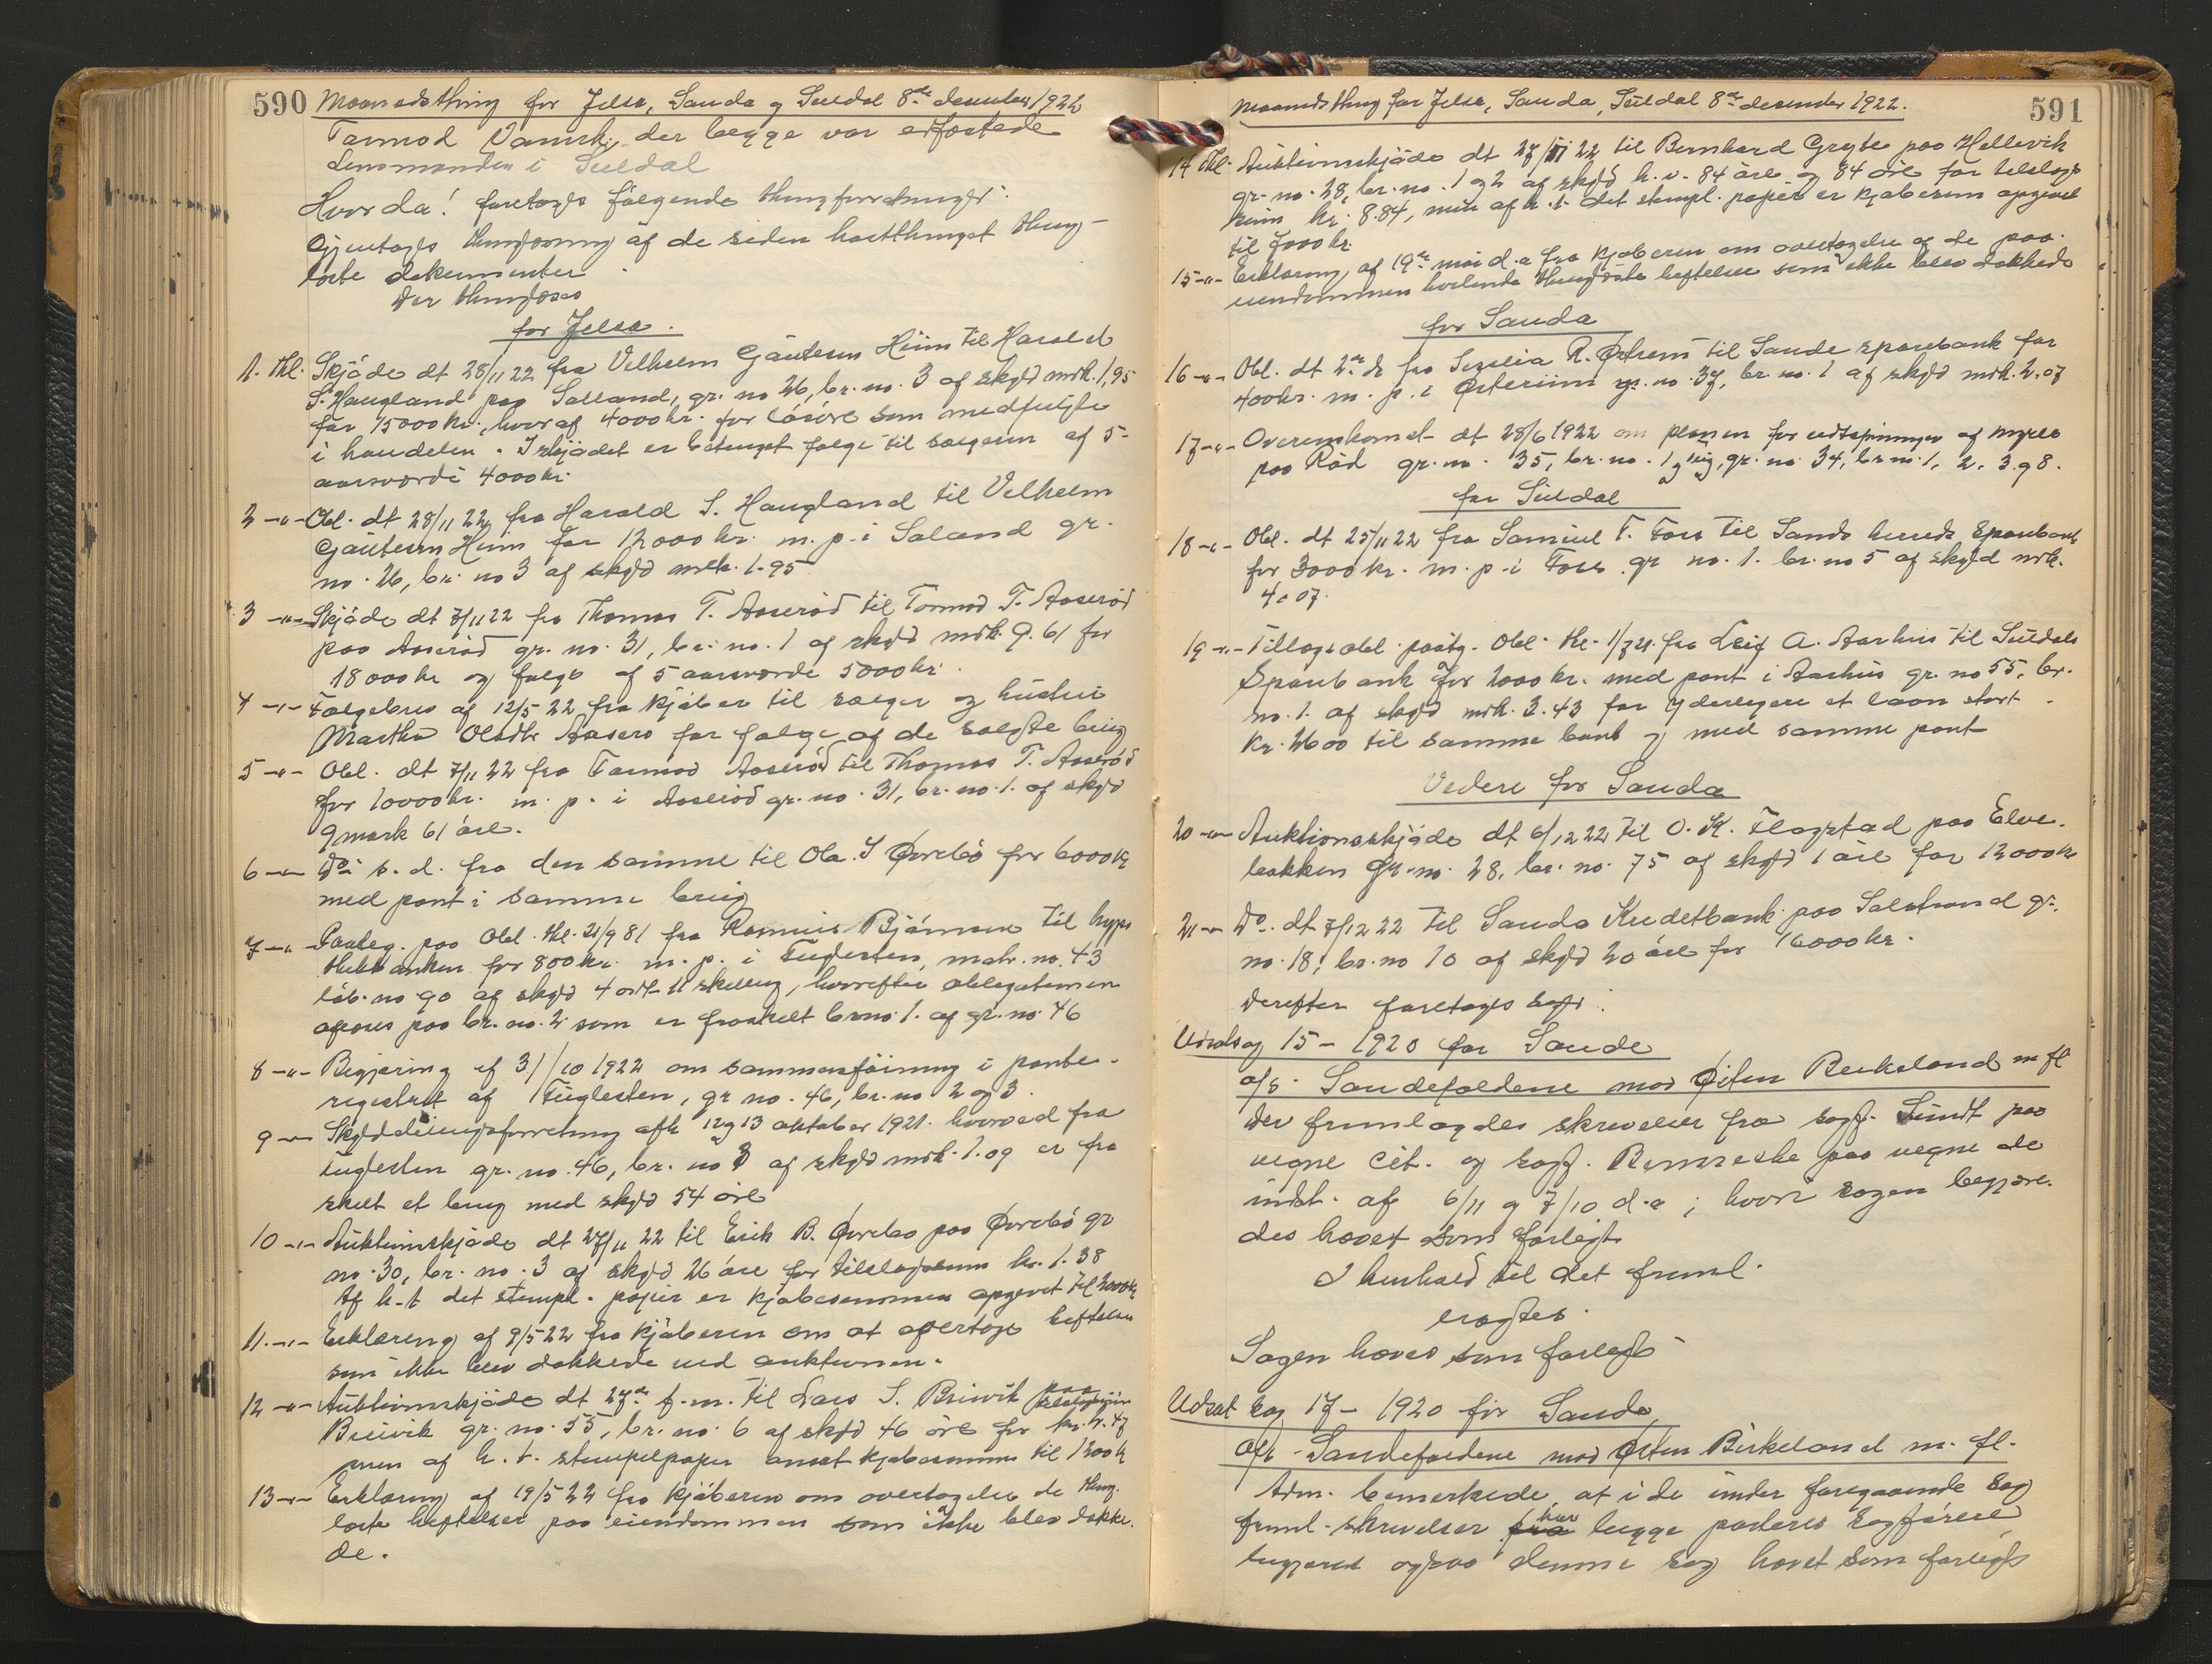 590 Maanedsthing for Jelse, Sauda og Suldal 8de desember 1922
Tormod Vamrk, der begge var erfostede
Lensmanden i Suldal
Hvor da! foretoges følgende thingforretninger:
Gjentages thinglæsning af de siden høstthinget thing-
læste dokumenter
Der thinglæses
for Jelse.
1. thl. Skjöde dt 28/11 22 fra Vilhelm Gautesen Hiim til Harald
S. Haugland paa Salland, gr. no 26, br. no. 3 af skyld mrk. 1,95
for 15000 kr., hvoraf 4000 kr. for lösöre som medfulgte
i handelen. I skjödet er betinget folge til sælgeren af 5-
aarsværdi 4000 kr.
2 -"- Obl. dt 28/11 22 fra Harald S. Haugland til Vilhelm
Gautesen Hiim for 12000 kr. m. p. i Saland gr.
no. 26, br. no 3 af skyld mrk. 1.95
3 -"- Skjöde dt 7/11 22 fra Thomas T. Aaseröd til Tormod T. Aaseröd
paa Aaseröd gr. no. 31, br. no. 1 af skyld mrk. 9.61 for
18000 kr og folge af 5 aarsværde 5000 kr.
4 -"- Følgebrev af 12/5 22 fra kjøber til sælger og hustru
Martha Olsdtr Aaserö for folge af de solgte brug
5 -"- Obl. dt 7/11 22 fra Tormod Aaseröd til Thomas T. Aaseröd
for 10000 kr. m. p. i Aaseröd gr. no. 31, br. no. 1. af skyld
9 mark 61 öre.
6 -"- Do s. d. fra den samme til Ola I Øvrebö for 6000 kr
med pant i samme brug
7 -"- Paateg. paa Obl. thl. 21/9 81 fra Rasmus Bjørnsen til hypo
thekbanken for 800 kr. m. p. i Fuglesten, matr. no. 43
löb. no 90 af skyld 4 ort 11 skilling, hvorefter obligationen
aflæses paa br. no. 2 som er fraskelt br no. 1. af gr. no 46
8 -"- Begjæring af 31/10 1922 om sammenföining i pante-
registret af Fuglesten, gr no. 46, br. no 2 og 3.
9 -"- Skylddelingsforretning afh 12 og 13 oktober 1921. hvorved fra
Fuglesten gr. no. 46, br. no 3 af skyld mrk. 1.09 er fra
skilt et brug med skyld 54 öre
10 -"- Auktionsskjöde dt 27/11 22 til Erik B. Øvrebö paa Øvrebö gr
no. 30, br. no. 3 af skyld 26 öre for tilslagssum kr. 1.38
Af h. t. det stempl. papir er kjöbesummen opgivet til 2000 kr
11. -"- Erklæring af 9/5 22 fra kjöberen om at overtage heftelser
som ikke blev dækkede ved auktionen.
12 -"- Auktionsskjöde dt 27de f. m. til Lars S. Brüvik paa
Brüvik gr. no. 55, br. no. 6 af skyld 46 öre for tilslagssum kr. 2.47
men af h. t. stempelpapir ansat kjöbesummen til 1200 kr
13 -"- Erklæring af 19/5 22 fra kjöberen om overtagelse de thing-
læste heftelser paa eiendommen som ikke blev dække-
de.
Maanedsthing for Jelse, Sauda, Suldal 8de desember 1922. 591
14 thl. Auktionsskjöde dt 27/11 22 til Bernhard Gryte paa Hellevik
gr. no. 28, br. no. 1 og 2 af skyld h. v. 84 öre og 84 öre for tilslags
sum kr. 8.84, men af h. t. det stempl. papir er kjøbesum opgivet
til 7000 kr.
15 -"- Erklæring af 19de mai d. a fra kjøberen om overtagelse af de paa
eiendommen hvilende thinglæste heftelser som ikke blev dækkede
for Sauda
16 -"- Obl. dt 2den ds fra Sezelia R. Østrem til Saude sparebank for
400 kr. m. p. i Østreim gr. no. 37, br. no. 1 af skyld mrk. 2.07
17 -"- Overenskomst dt 28/6 1922 om planen for udskiftningen af myrer
paa Röd gr. no. 35, br. no. 1 og, gr. no. 34, br no. 1, 2, 3 og 8.
for Suldal
18 -"- Obl. dt 25/11 22 fra Samuel T. Foss til Sands herreds Sparebank
for 3000 kr. m. p. i Foss gr no. 1. br. no 5 af skyld mrk.
4.07.
19 -"- Tillægs obl. paatg. Obl. thl. 1/7 21. fra Leif A. Aarhus til Suldals
Sparebank for 2000 kr. med pant i Aarhus gr. no 55, br.
no. 1. af skyld mrk. 3.43 for yderligere et laan stort
Kr. 2600 til samme bank og med samme pant
Videre for Sauda
20 -"- Auktionsskjöde dt 6/12 22 til O. K. Flogstad paa Elve-
bakken gr. no. 28, br. no. 75 af skyld 1 öre for 12000 kr
21 -"- Do. dt 7/12 22 til Sauda Kreditbank paa Solstrand gr.
no. 18, br. no 10 af skyld 20 öre for 16000 kr.
Derefter foretages sag:
Udsat sag 15 - 1920 for Saude
A/s. Saudefaldene mod Østen Birkeland m fl
Der fremlagdes skrivelser fra sagf. Lundt paa
vegne cit. og sagf. Bærrske paa vegne de
indst. af 6/11 og 7/10 d. a; hvori sagen begjære-
des hævet som forligt.
I henhold til det freml.
eragtes.
Sagen hæves som forligt
Udsat sag 17 - 1920 for Saude
A/s - Saudefaldene mod Østen Birkeland m. fl.
Adm. bemerkede, at i de under foregaaende sag
freml. skrivelser har begge parters sagførere
begjæret ogsaa denne sag hævet som forligt